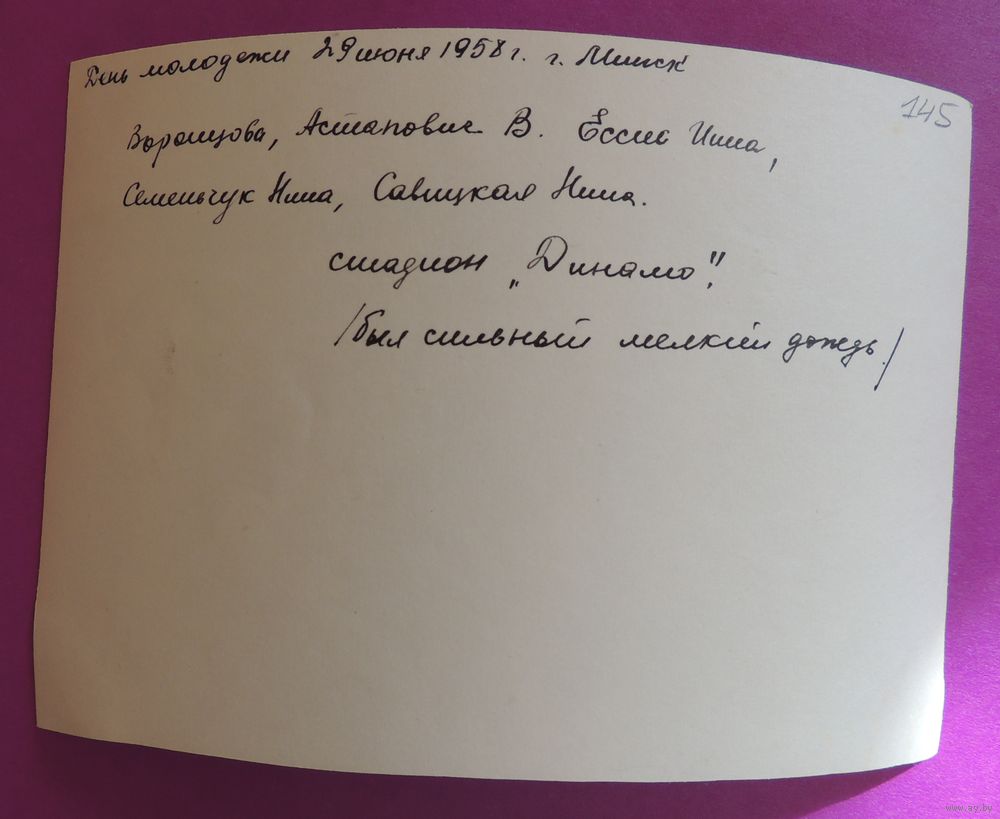 День молодежи 29 июня 1958 г. г. Минск
145
Астапович В. Нина,
Семенчук Нина, Савицкая Нина.
стадион „Динамо".
/был сильный мелкий дождь./
www.ay.by